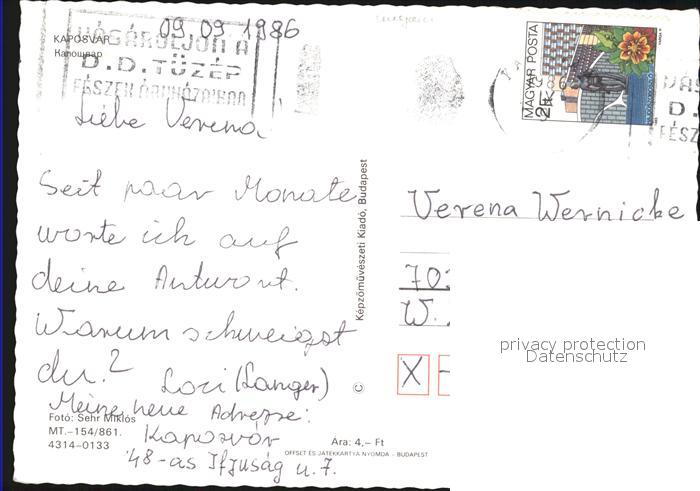 09 09 1986
KAPOSVÁR
Капошвар
VÁSÁROLJON A
D.D. TÜZÉP
FÉSZEK ÁRUHÁZAIBAN
MAGYAR POSTA
2Ft
Liebe Verena!
Seit paar Monate
worte ich auf
deine Antwort.
Warum schweigst
du?
Loci (Langer)
Meine neue Adresse:
Kaposvár
'48-as Ifjuság u. 7.
Fotó: Sehr Miklós
MT.–154/861.
4314–0133
Ára: 4,– Ft
OFFSET ÉS JÁTÉKKÁRTYA NYOMDA - BUDAPEST
© Képzőművészeti Kiadó, Budapest
Verena Wernicke
70
W.
X
privacy protection
Datenschutz